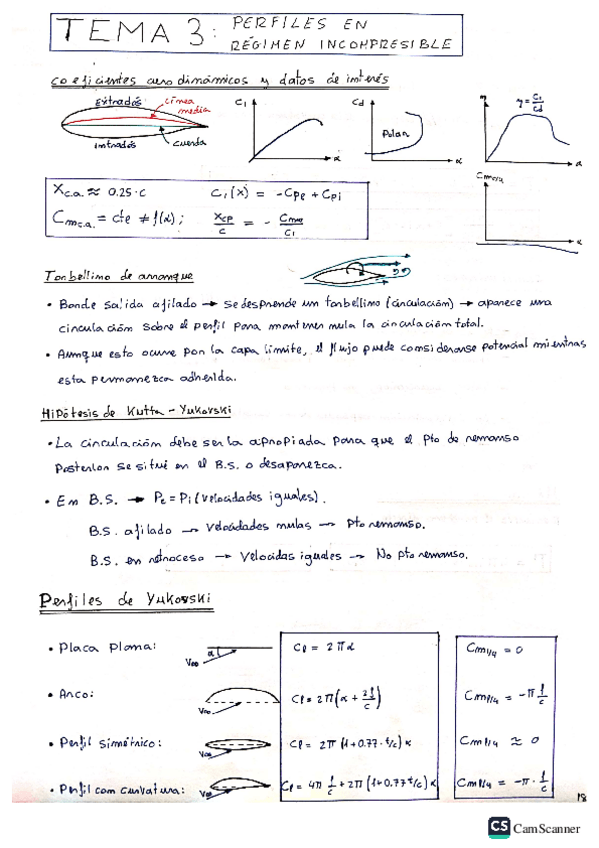 TEMA 3: PERFILES EN
RÉGIMEN INCOMPRESIBLE
coeficientes aerodinámicos y datos de interés
Extradós
Línea media
Intradós
Cuerda
Cl
α
Cd
Polar
α
η
η = Cl/Cd
α
Cmc.a
α
Xc.a. ≈ 0.25·c
Cl(x) = -Cpe + Cpi
Cmc.a. = cte ≠ f(α);
Xcp/c = -
Cl
Torbellino de arranque
• Borde salida afilado → se desprende un torbellino (circulación) → aparece una
circulación sobre el perfil para mantener nula la circulación total.
• Aunque esto ocurre por la capa límite, el flujo puede considerarse potencial mientras
esta permanezca adherida.
Hipótesis de Kutta - Yukovski
• La circulación debe ser la apropiada para que el pto de remanso
posterior se situe en el B.S. o desaparezca.
• En B.S. → Pe = Pi (velocidades iguales).
B.S. afilado → velocidades nulas → Pto remanso.
B.S. en retroceso → Velocidas iguales → No pto remanso.
Perfiles de Yukovski
• Placa Plana:
α
V∞
Cl = 2πα
Cm1/4 = 0
• Arco:
V∞
Cl = 2π(α + 2f/c)
Cm1/4 = -π f/c
• Perfil simétrico:
V∞
Cl = 2π (1+0.77·t/c) α
Cm1/4 ≈ 0
• Perfil con curvatura:
V∞
Cl = 4π f/c + 2π (1+0.77 t/c) α
Cm1/4 = -π· f/c
18
CS CamScanner